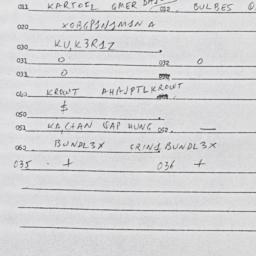 011 KARTOFL GMER 012 BULBES
020 XOBGP1N1M1N A
030 KU, K3R1Z
031 O 032 O
033 O
040 KROWT AHAJPTLKROWT
$
050
051 KA, CHAN GAP HUNG 052. —
062 BUNDL3X GRIN1, BUNDL3X
035 . + 036 +